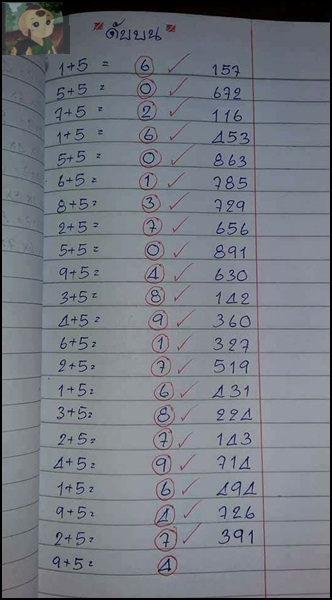 " ดับบน "
1+5 = 6 ✓ 157
5+5 = 0 ✓ 672
7+5 = 2 ✓ 116
1+5 = 6 ✓ 453
5+5 = 0 ✓ 863
6+5 = 1 ✓ 785
8+5 = 3 ✓ 729
2+5 = 7 ✓ 656
5+5 = 0 ✓ 891
9+5 = 4 ✓ 630
3+5 = 8 ✓ 142
4+5 = 9 ✓ 360
6+5 = 1 ✓ 327
2+5 = 7 ✓ 519
1+5 = 6 ✓ 431
3+5 = 8 ✓ 224
2+5 = 7 ✓ 143
4+5 = 9 ✓ 714
1+5 = 6 ✓ 494
9+5 = 4 ✓ 726
2+5 = 7 ✓ 391
9+5 = 4